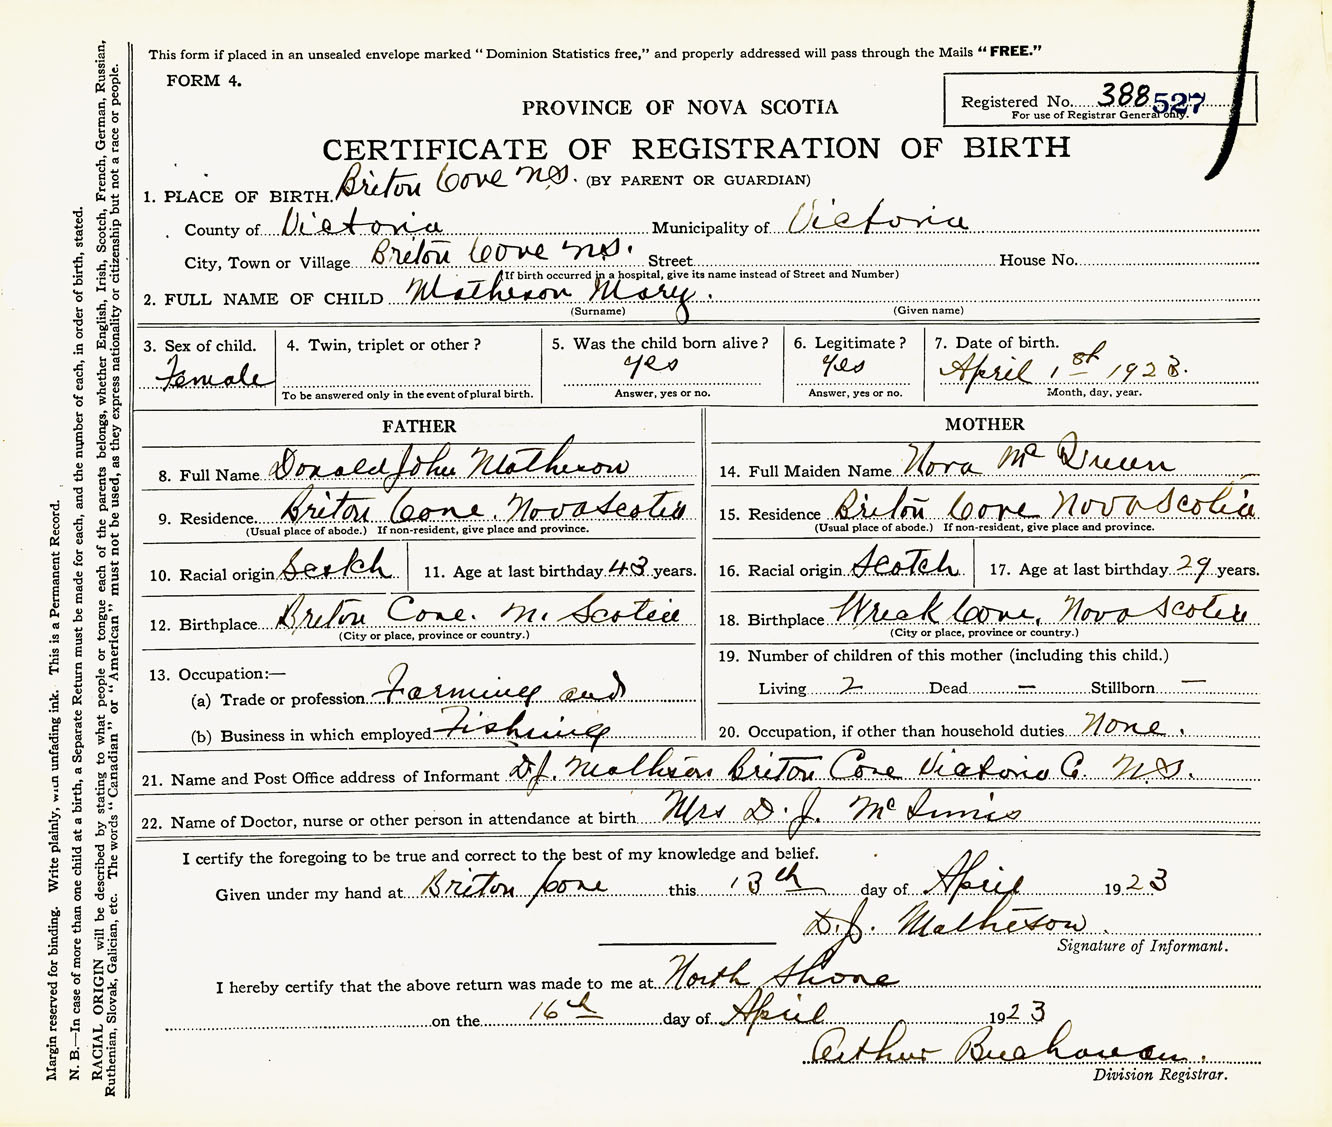 This form if placed in an unsealed envelope marked "Dominion Statistics free," and properly addressed will pass through the Mails "FREE."
FORM 4.
Registered No. 388 527
For use of Registrar General only.
PROVINCE OF NOVA SCOTIA
CERTIFICATE OF REGISTRATION OF BIRTH
(BY PARENT OR GUARDIAN)
1. PLACE OF BIRTH. Briton Cove N.S.
County of Victoria Municipality of Victoria
City, Town or Village Briton Cove N.S. Street House No.
(If birth occurred in a hospital, give its name instead of Street and Number)
2. FULL NAME OF CHILD Matheson Mary.
(Surname) (Given name)
3. Sex of child. Female
4. Twin, triplet or other?
To be answered only in the event of plural birth.
5. Was the child born alive? yes
Answer, yes or no.
6. Legitimate? Yes
Answer, yes or no.
7. Date of birth. April 1st 1923.
Month, day, year.
FATHER
8. Full Name Donald John Matheson
9. Residence Briton Cove. Nova Scotia
(Usual place of abode.) If non-resident, give place and province.
10. Racial origin Scotch 11. Age at last birthday 43 years.
12. Birthplace Briton Cove. N. Scotia
(City or place, province or country.)
13. Occupation:—
(a) Trade or profession Farming and
(b) Business in which employed Fishing
MOTHER
14. Full Maiden Name Nora McQueen
15. Residence Briton Cove Nova Scotia
(Usual place of abode.) If non-resident, give place and province.
16. Racial origin Scotch 17. Age at last birthday 29 years.
18. Birthplace Wreck Cove, Nova Scotia
(City or place, province or country.)
19. Number of children of this mother (including this child.)
Living 2 Dead — Stillborn —
20. Occupation, if other than household duties None.
21. Name and Post Office address of Informant D.J. Matheson Briton Cove Victoria Co. N.S.
22. Name of Doctor, nurse or other person in attendance at birth Mrs D. J. McInnis
I certify the foregoing to be true and correct to the best of my knowledge and belief.
Given under my hand at Briton Cove this 13th day of April 1923
D.J. Matheson.
Signature of Informant.
I hereby certify that the above return was made to me at North Shore
on the 16th day of April 1923
Arthur Buchanan.
Division Registrar.
Margin reserved for binding. Write plainly, with unfading ink. This is a Permanent Record.
N. B.—In case of more than one child at a birth, a Separate Return must be made for each, and the number of each, in order of birth, stated.
RACIAL ORIGIN will be described by stating to what people or tongue each of the parents belongs, whether English, Irish, Scotch, French, German, Russian,
Ruthenian, Slovak, Galician, etc. The words "Canadian" or "American" must not be used, as they express nationality or citizenship but not a race or people.